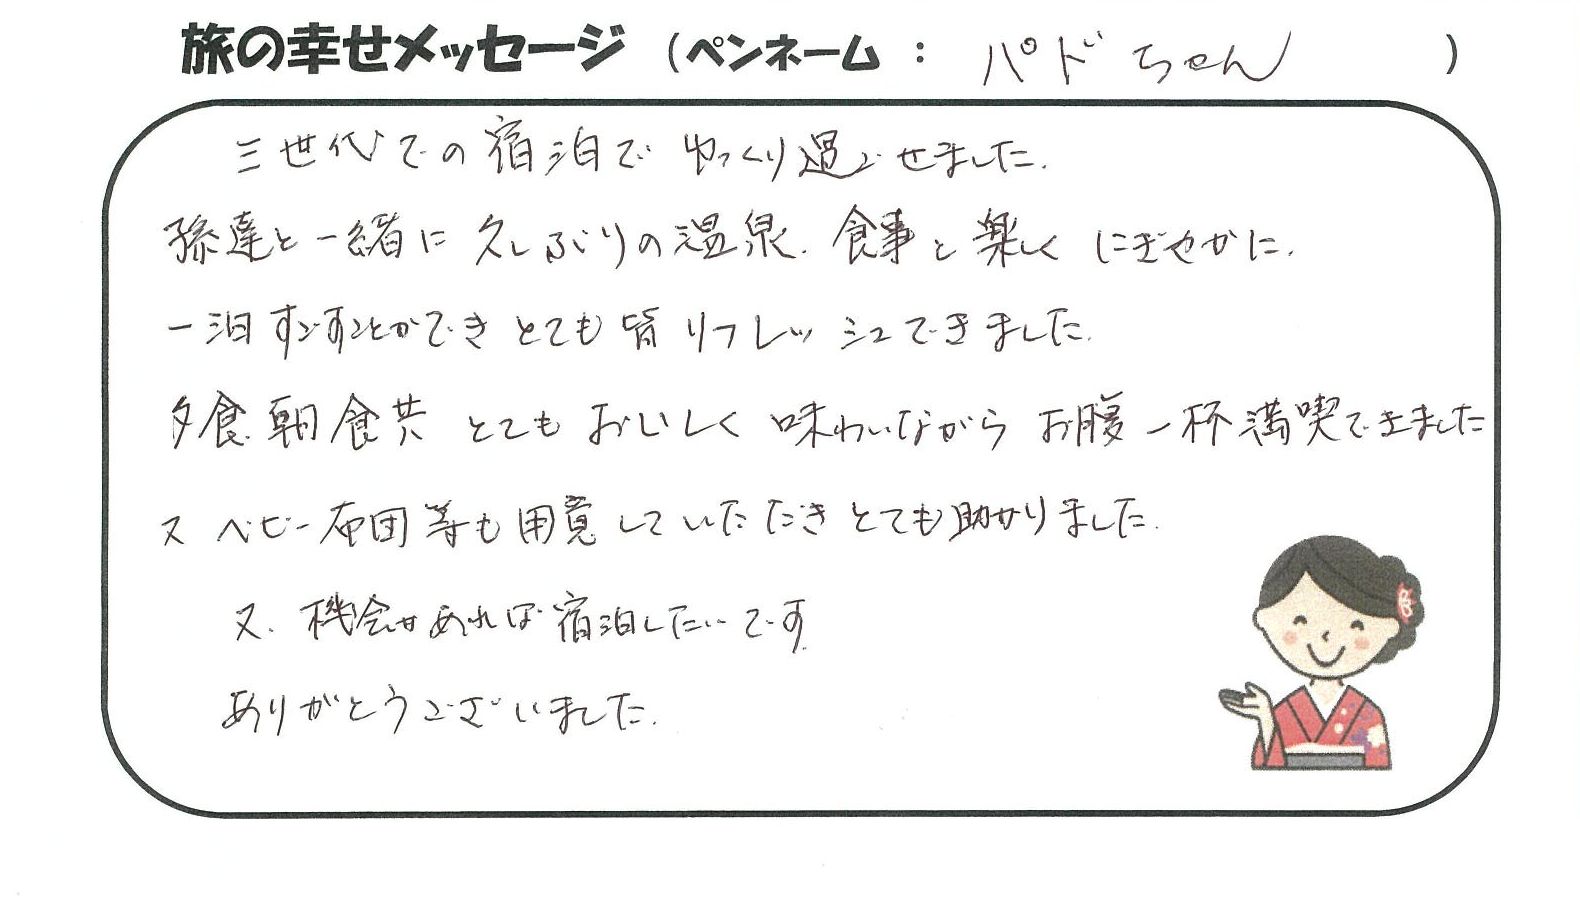 旅の幸せメッセージ（ペンネーム：パドちゃん）
三世代での宿泊でゆっくり過ごせました.
孫達と一緒に久しぶりの温泉.食事と楽しくにぎやかに.
一泊すごすことができとても皆リフレッシュできました.
夕食.朝食共とてもおいしく味わいながらお腹一杯満喫できました
又ベビー布団等も用意していただきとても助かりました.
又.機会があれば宿泊したいです.
ありがとうございました.